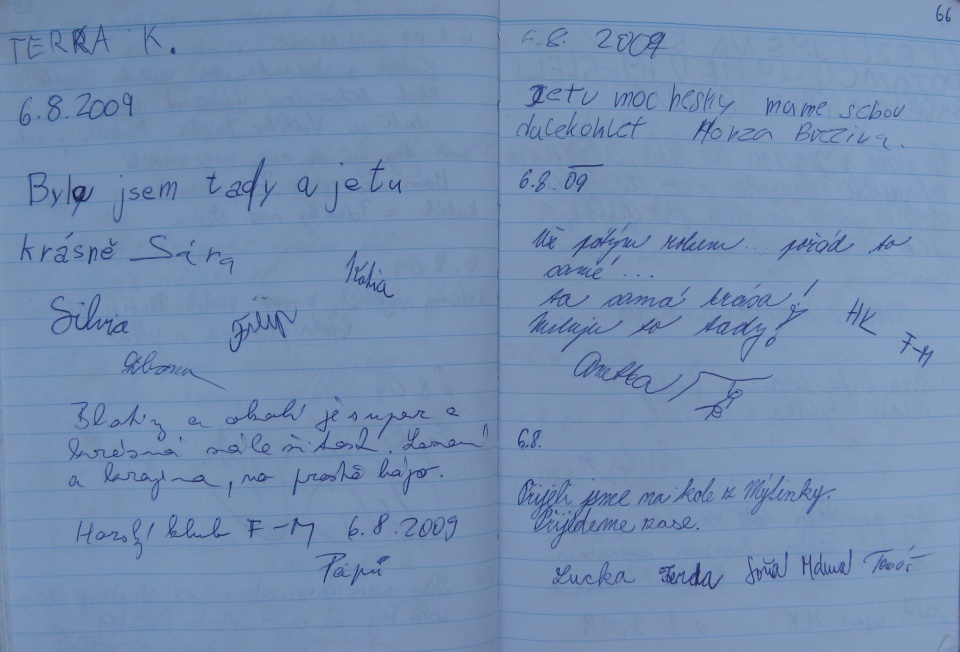 TERKA K.
6.8.2009
Byla jsem tady a jetu
krásně Sára
Katia
Silvia Filip
Blatiny a okolí je super a
krásná
a krajina, no prostě hájo.
Horský klub F-M 6.8.2009
Pápů
66
6.8. 2009
Jetu moc hesky mame sebou
dalekohlet Honza Březina.
6.8.09
Už pátým rokem... pořád to
samé...
ta samá krása!
Miluju to tady! HK
F-M
Anetka
6.8.
Přijeli jsme na kole z Mýlinky.
Přijdeme zase.
Lucka Ferda Soňa Máma Tomáš